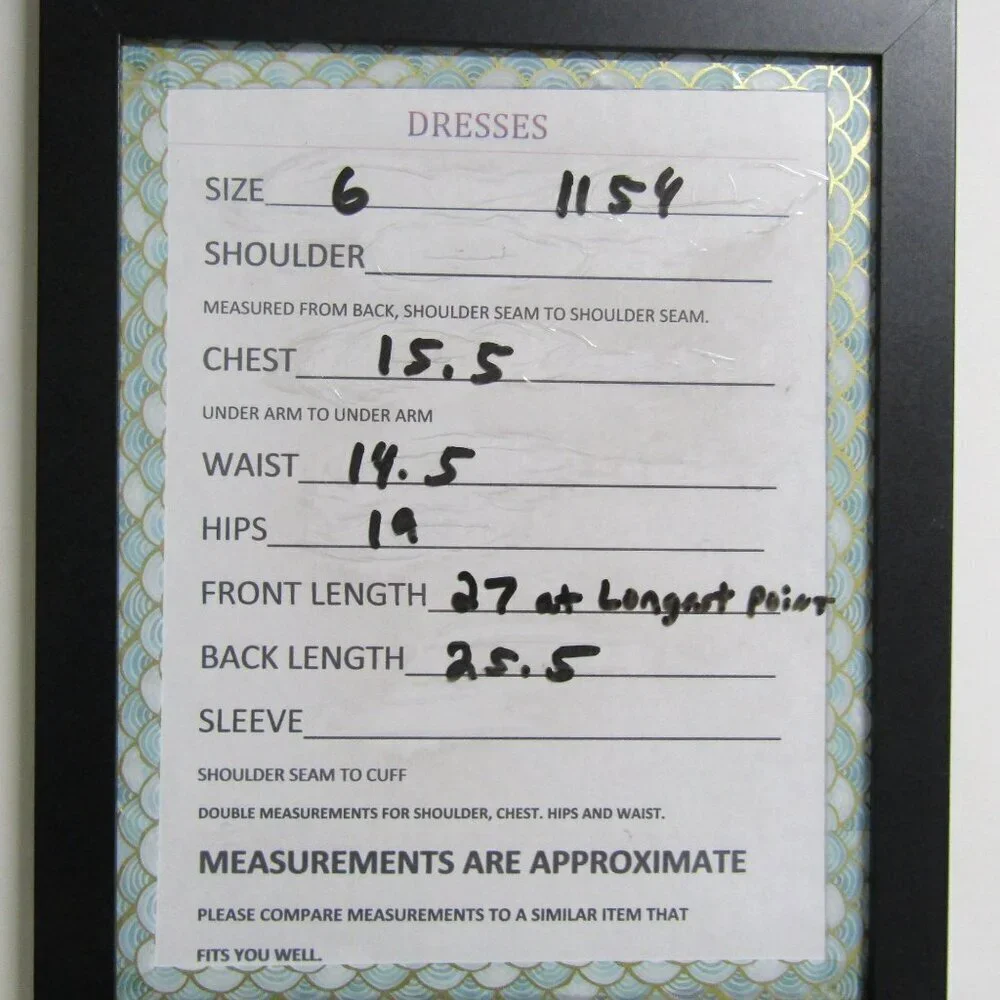 DRESSES
SIZE 6 1154
SHOULDER
MEASURED FROM BACK, SHOULDER SEAM TO SHOULDER SEAM.
CHEST 15.5
UNDER ARM TO UNDER ARM
WAIST 14.5
HIPS 19
FRONT LENGTH 27 at Longest point
BACK LENGTH 25.5
SLEEVE
SHOULDER SEAM TO CUFF
DOUBLE MEASUREMENTS FOR SHOULDER, CHEST. HIPS AND WAIST.
MEASUREMENTS ARE APPROXIMATE
PLEASE COMPARE MEASUREMENTS TO A SIMILAR ITEM THAT
FITS YOU WELL.